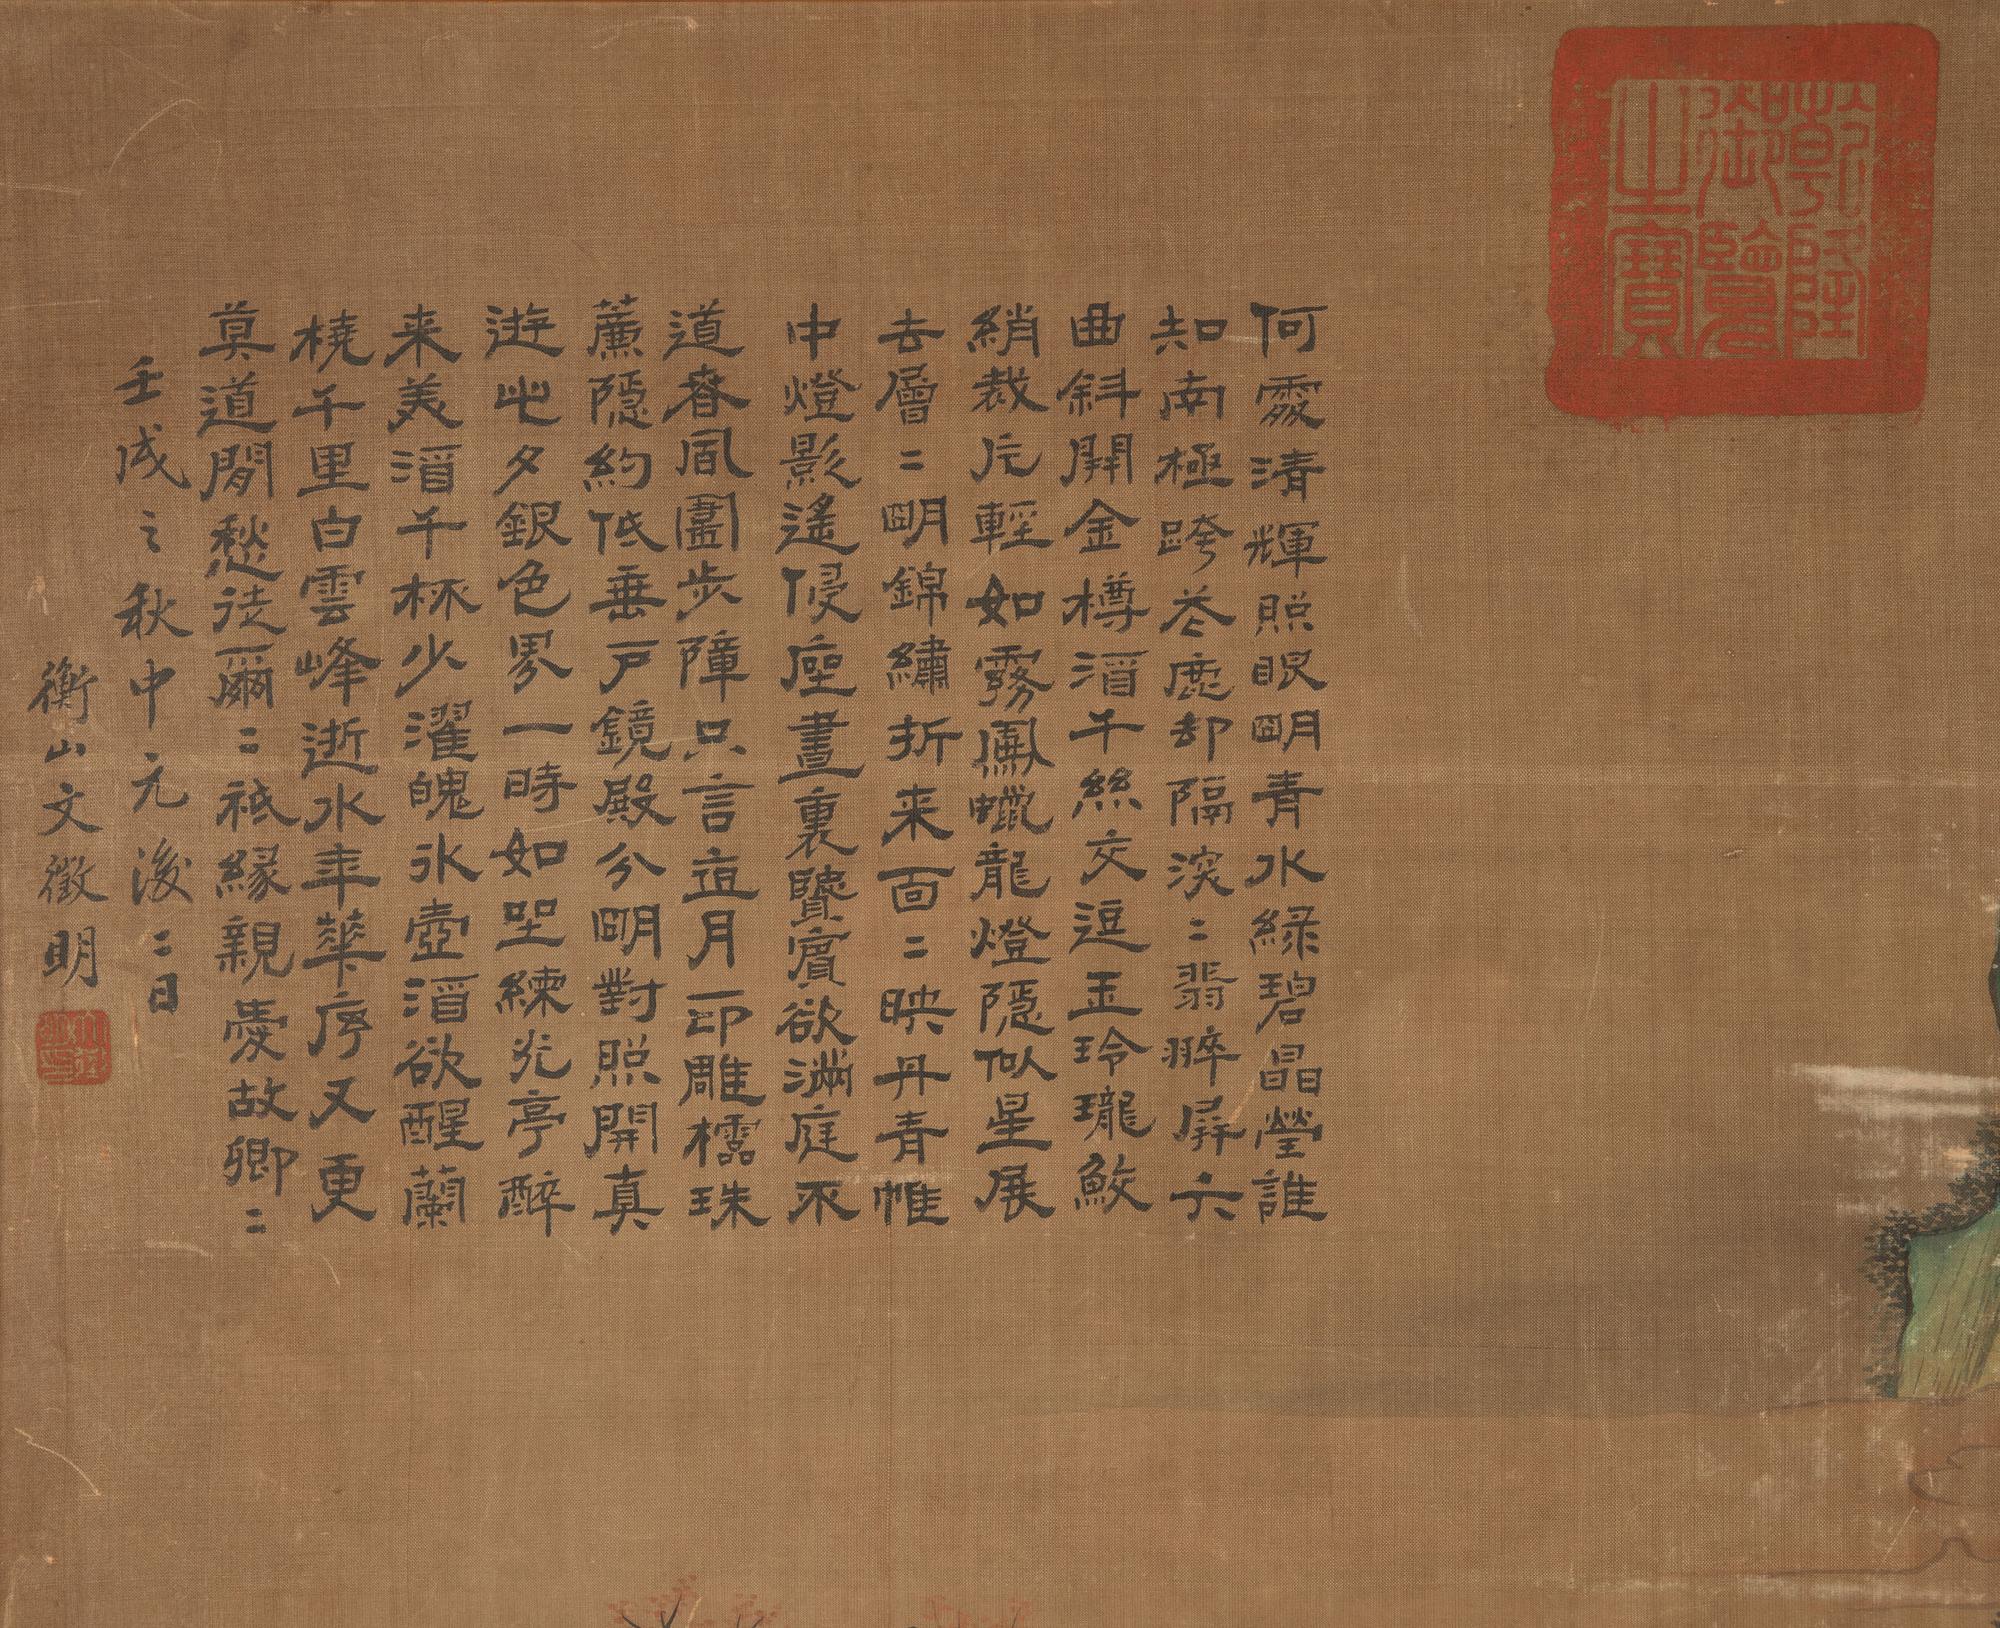 乾隆
御覽
之寶
何處清輝照眼明青水緑碧晶瑩誰
知南極跨蒼鹿却隔深二翡翠屏六
曲斜開金樽酒千絲交逗玉玲瓏鮫
綃裁片輕如霧鳳蠟龍燈隱似星展
去層二明錦繡折来面二映丹青帷
中燈影遙侵座畫裏賢賓欲滿庭不
道春風圖步障只言月印雕櫺珠
薕隱約低垂戶鏡殿分明對照開真
遊此夕銀色界一時如坐練光亭醉
来美酒千杯少濯魄冰壺酒欲醒蘭
橈千里白雲峰逝水年華序又更
莫道閒愁徒爾二祗緣親愛故卿二
壬戌之秋中元後二日
衡山文徵明